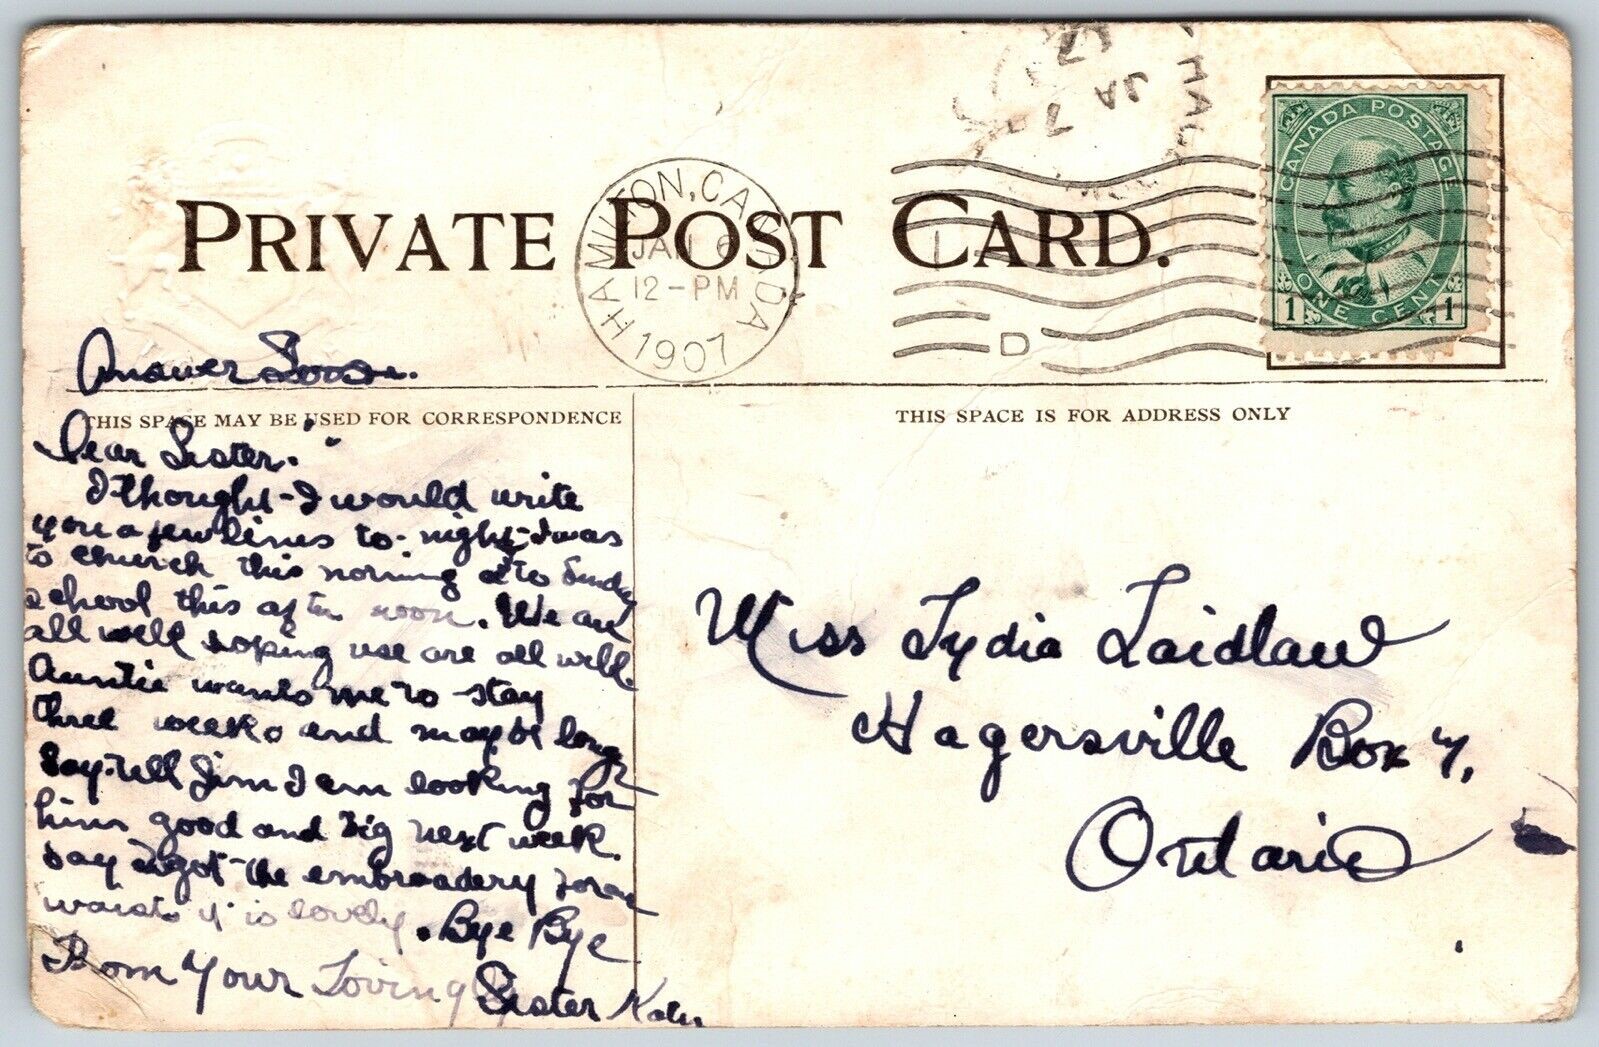 PRIVATE POST CARD.
HAMILTON, CANADA
JA 6
12-PM
1907
D
JA 7
CANADA POSTAGE
1 ONE CENT 1
Answer Soon.
THIS SPACE MAY BE USED FOR CORRESPONDENCE
THIS SPACE IS FOR ADDRESS ONLY
Dear Sister.
I thought I would write
you a few lines to-night I was
to church this morning & to Sunday
school this after noon. We are
all well hoping use are all well.
Auntie wants me to stay
three weeks and maybe longer
Say tell Jim I am looking for
him good and big next week.
Say I got the embroadery for a
waist it is lovely. Bye Bye
From Your Loving
Sister
Miss Lydia Laidlaw
Hagersville Box 7,
Ontario